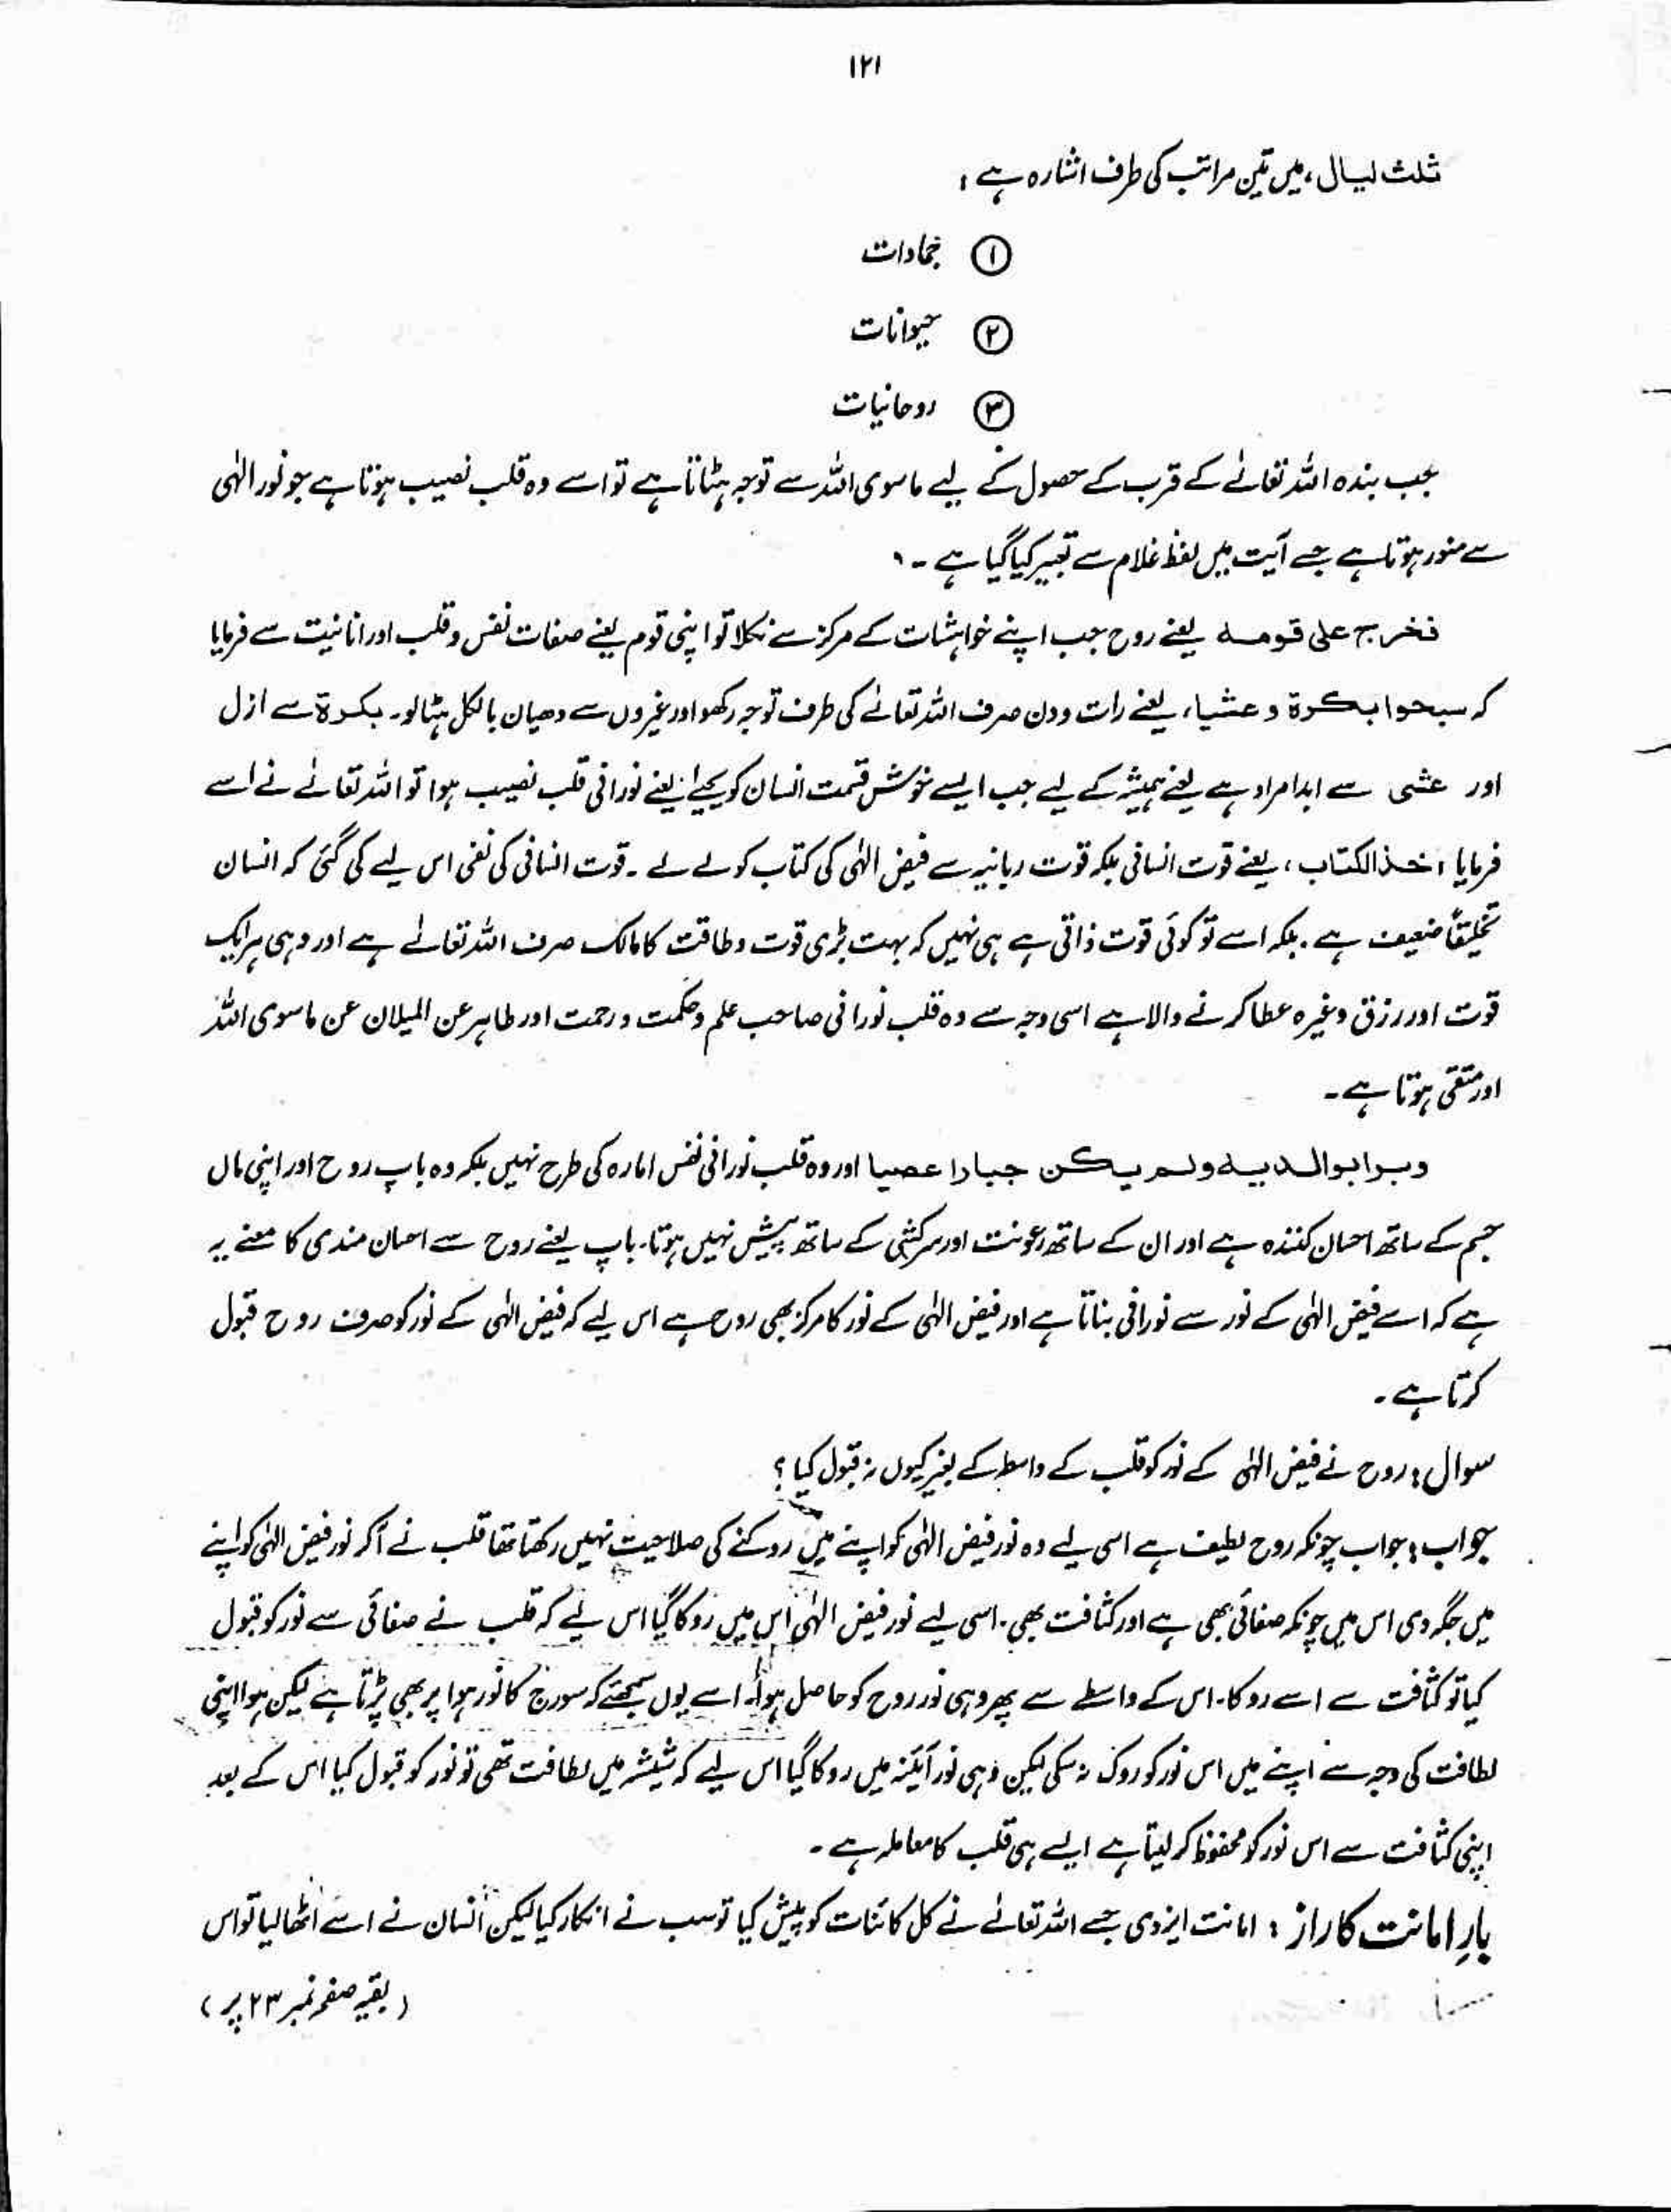 ۱۲۱
ثلث لیال، میں تین مراتب کی طرف اشارہ ہے :
① جمادات
② حیوانات
③ روحانیات
جب بندہ اللہ تعالےٰ کے قرب کے حصول کے لیے ماسوی اللہ سے توجہ ہٹاتا ہے تو اسے وہ قلب نصیب ہوتا ہے جو نور الٰہی
سے منور ہوتا ہے جسے آیت میں لفظ غلام سے تعبیر کیا گیا ہے ۔
فخرج علی قومہ یعنے روح جب اپنے خواہشات کے مرکز سے نکلا تو اپنی قوم یعنے صفات نفس و قلب اور انانیت سے فرمایا
کہ سبحوا بکرۃ و عشیا، یعنے رات و دن صرف اللہ تعالےٰ کی طرف توجہ رکھو اور غیروں سے دھیان بالکل ہٹا لو۔ بکرۃ سے ازل
اور عشی سے ابد مراد ہے یعنے ہمیشہ کے لیے جب ایسے خوش قسمت انسان کو یحیےٰ یعنے نورانی قلب نصیب ہوا تو اللہ تعالےٰ نے اسے
فرمایا : خذ الکتاب، یعنے قوت انسانی بلکہ قوت ربانیہ سے فیض الٰہی کی کتاب کو لے لے ۔ قوت انسانی کی نفی اس لیے کی گئی کہ انسان
تخلیقاً ضعیف ہے ۔ بلکہ اسے تو کوئی قوت ذاتی ہے ہی نہیں کہ بہت بڑی قوت و طاقت کا مالک صرف اللہ تعالےٰ ہے اور وہی ہر ایک
قوت اور رزق وغیرہ عطا کرنے والا ہے اسی وجہ سے وہ قلب نورانی صاحب علم و حکمت و رحمت اور طاہر عن المیلان عن ماسوی اللہ
اور متقی ہوتا ہے ۔
وبرا بوالدیہ ولم یکن جبارا عصیا اور وہ قلب نورانی نفس امارہ کی طرح نہیں بلکہ وہ باپ روح اور اپنی ماں
جسم کے ساتھ احسان کنندہ ہے اور ان کے ساتھ رعونت اور سرکشی کے ساتھ پیش نہیں ہوتا۔ باپ یعنے روح سے احسان مندی کا معنے یہ
ہے کہ اسے فیض الٰہی کے نور سے نورانی بناتا ہے اور فیض الٰہی کے نور کا مرکز بھی روح ہے اس لیے کہ فیض الٰہی کے نور کو صرف روح قبول
کرتا ہے ۔
سوال : روح نے فیض الٰہی کے نور کو قلب کے واسطہ کے بغیر کیوں نہ قبول کیا ؟
جواب : جواب چونکہ روح لطیف ہے اسی لیے وہ نور فیض الٰہی کو اپنے میں روکنے کی صلاحیت نہیں رکھتا تھا قلب نے آکر نور فیض الٰہی کو اپنے
میں جگہ دی اس میں چونکہ صفائی بھی ہے اور کثافت بھی ۔ اسی لیے نور فیض الٰہی اس میں روکا گیا اس لیے کہ قلب نے صفائی سے نور کو قبول
کیا تو کثافت سے اسے روکا ۔ اس کے واسطے سے پھر وہی نور روح کو حاصل ہوا۔ اسے یوں سمجھئے کہ سورج کا نور ہوا پر بھی پڑتا ہے لیکن ہوا اپنی
لطافت کی وجہ سے اپنے میں اس نور کو روک نہ سکی لیکن وہی نور آئینہ میں روکا گیا اس لیے کہ شیشہ میں لطافت تھی تو نور کو قبول کیا اس کے بعد
اپنی کثافت سے اس نور کو محفوظ کر لیتا ہے ایسے ہی قلب کا معاملہ ہے ۔
بارِ امانت کا راز : امانت ایزدی جسے اللہ تعالےٰ نے کل کائنات کو پیش کیا تو سب نے انکار کیا لیکن انسان نے اسے اٹھا لیا تو اس
( بقیہ صفحہ نمبر ۲۳ پر )